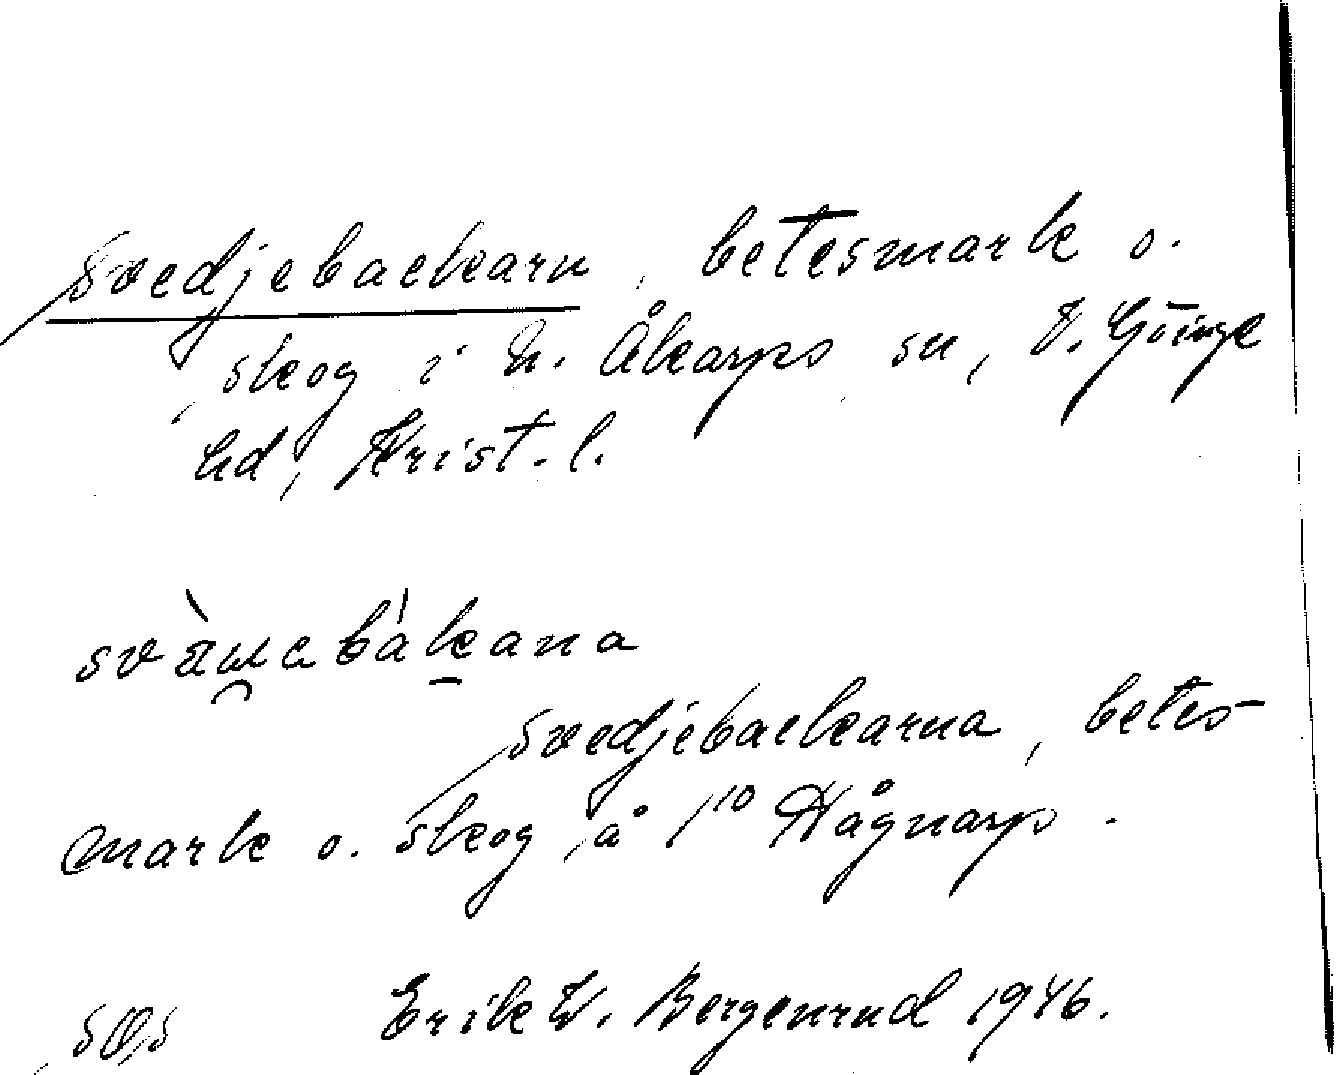 Svedjebackarn, betesmark o.
skog i N. Åkarps sn, V. Göinge
hd, Krist. l.
Svedjebackarna, betes-
mark o. skog, å 1¹⁰ Hågnarp.
Erik W. Bergenrud 1946.